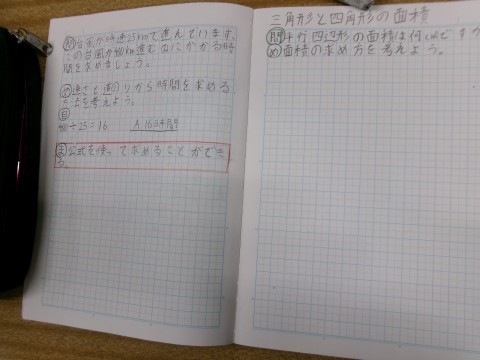 ㋣台風が時速25kmで進んでいます。
この台風が400km進むのにかかる時
間を求めましょう。
㋱速さと道のりから時間を求める
方法を考えよう。
自
400÷25=16 A 16時間
㋮公式を使って求めることができ
る。
三角形と四角形の面積
問平行四辺形の面積は何cm²ですか
㋱面積の求め方を考えよう。